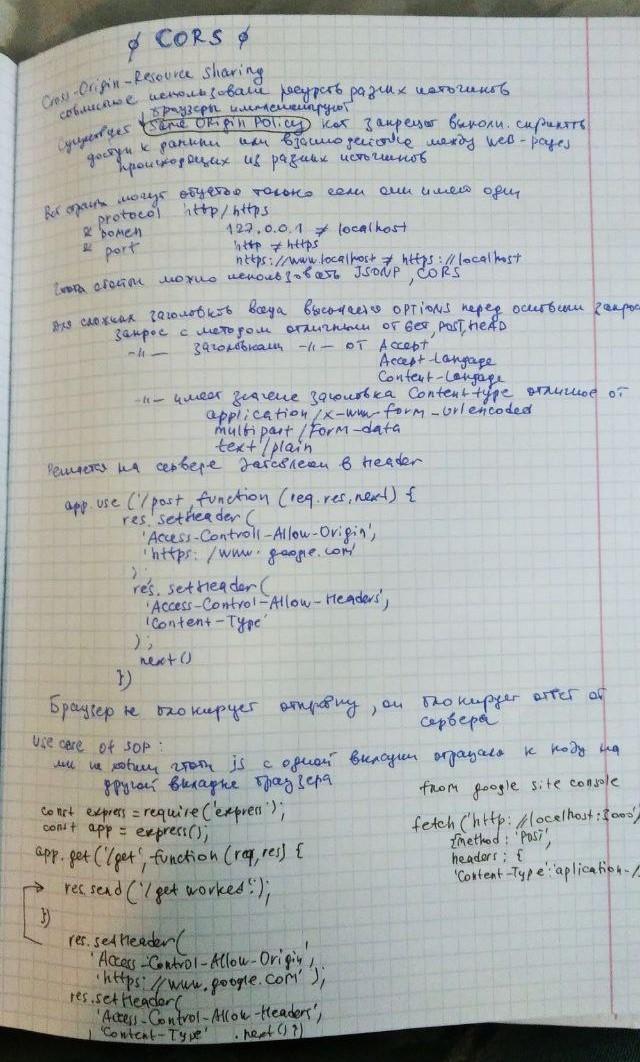 ∮ CORS ∮
Cross-Origin-Resource Sharing
совместное использован ресурсов разных источников
браузеры имплементируют
Существует Same Origin Policy кот запрещет выполн. скриптов
доступ к данным или взаимодействие между web-pages
происходящих из разных источников
Веб страниц могут общатся только если они имеют один
protocol http/https
& домен 127.0.0.1 ≠ localhost
& port http ≠ https
https://www.localhost ≠ https://localhost
можно использовать JSONP, CORS
Для сложных заголовков всегда высылается OPTIONS перед основным запрос
запрос с методом отличным от GET, POST, HEAD
-//- заголовками -//- от Accept
Accept-Langage
Content-Langage
-//- имеет значение заголовка Content-type отличное от
application/x-www-form-urlencoded
multipart/form-data
text/plain
Решается на сервере в Header
app.use ('/post, function (req.res,next) {
res.setHeader(
'Access-Controll-Allow-Origin',
'https:/www.google.com'
);
res.setHeader(
'Access-Control-Allow-Headers',
'Content-Type'
);
next()
})
Браузер не блокирует отправку, он блокирует ответ от
сервера
Use case of SOP:
мы не хотим чтобы js с одной вкладки к коду на
другой вкладке браузера
from google site console
const express = require('express');
const app = express();
fetch('http://localhost:3000'
{method: 'POST',
headers: {
'Content-Type':'aplication-/
app.get('/get', function (req,res) {
res.send('/get worked!');
})
res.setHeader(
'Access-Control-Allow-Origin',
'https://www.google.com');
res.setHeader(
'Access-Control-Allow-Headers',
'Content-Type' .next()